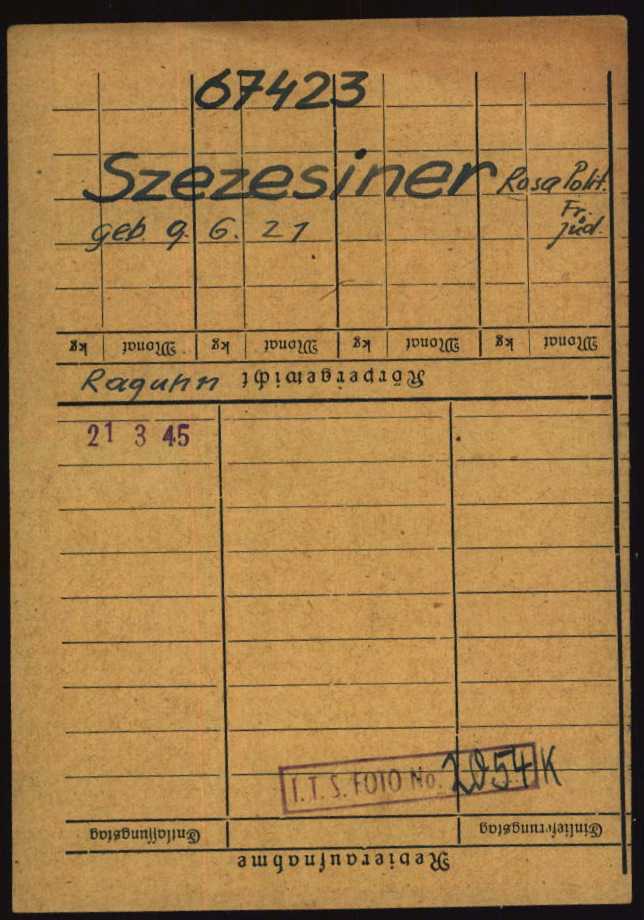 67423
Szezesiner Rosa Polit.
Fr.
geb. 9. 6. 21 jüd.
kg Monat kg Monat kg Monat kg Monat
Raguhn Körpergewicht
21 3 45
I. T. S. FOTO No. 2054/K
Entlassungstag Einlieferungstag
Revieraufnahme